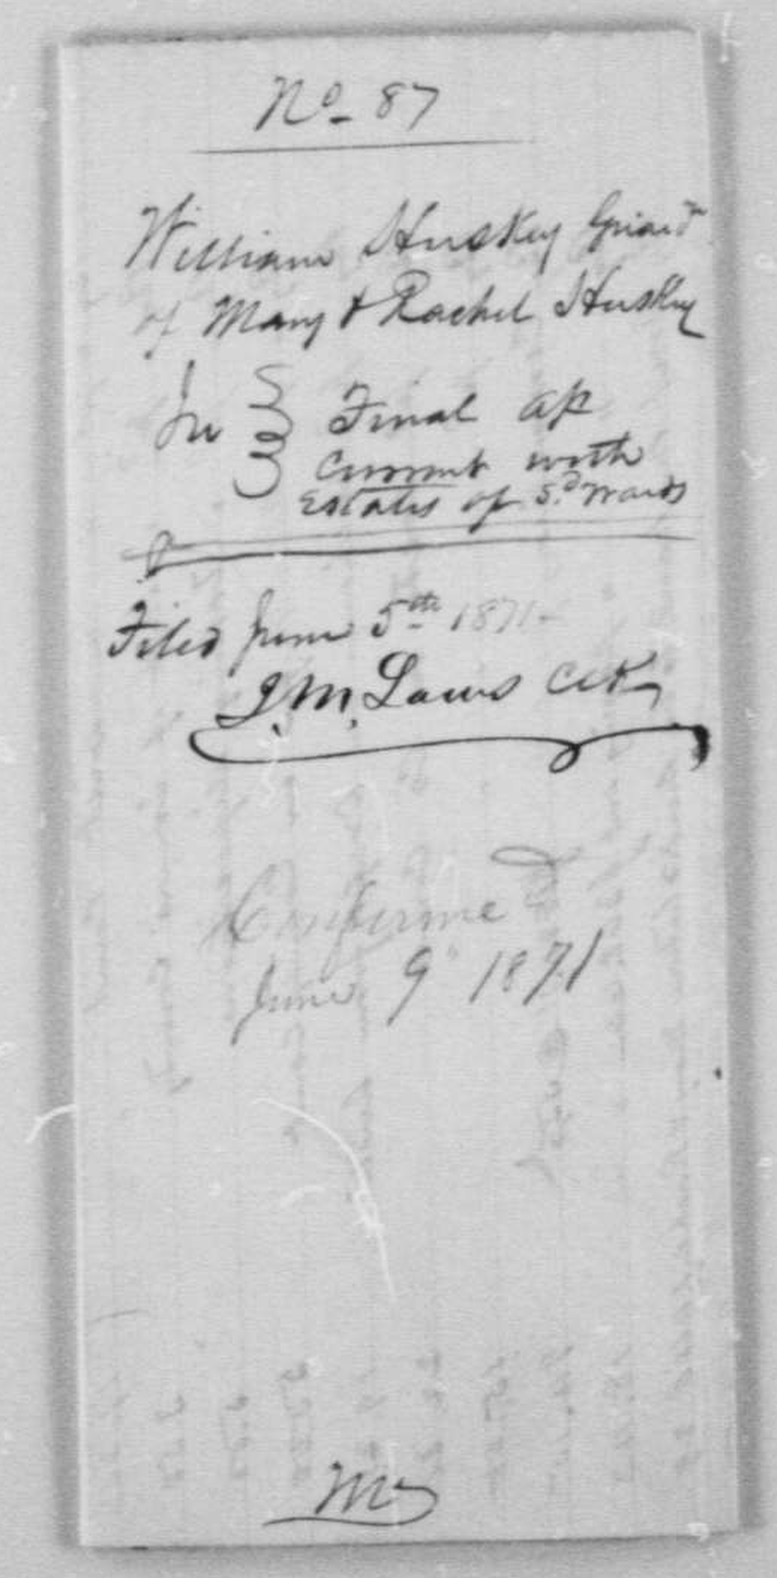 No- 87
William Huskey Guard
of Mary & Rachel Huskey
In Final a/c
Current with
Estates of Sd. Wards
Filed June 5th 1871-
J. M. Laws Clk
Confirmed
June 9 1871